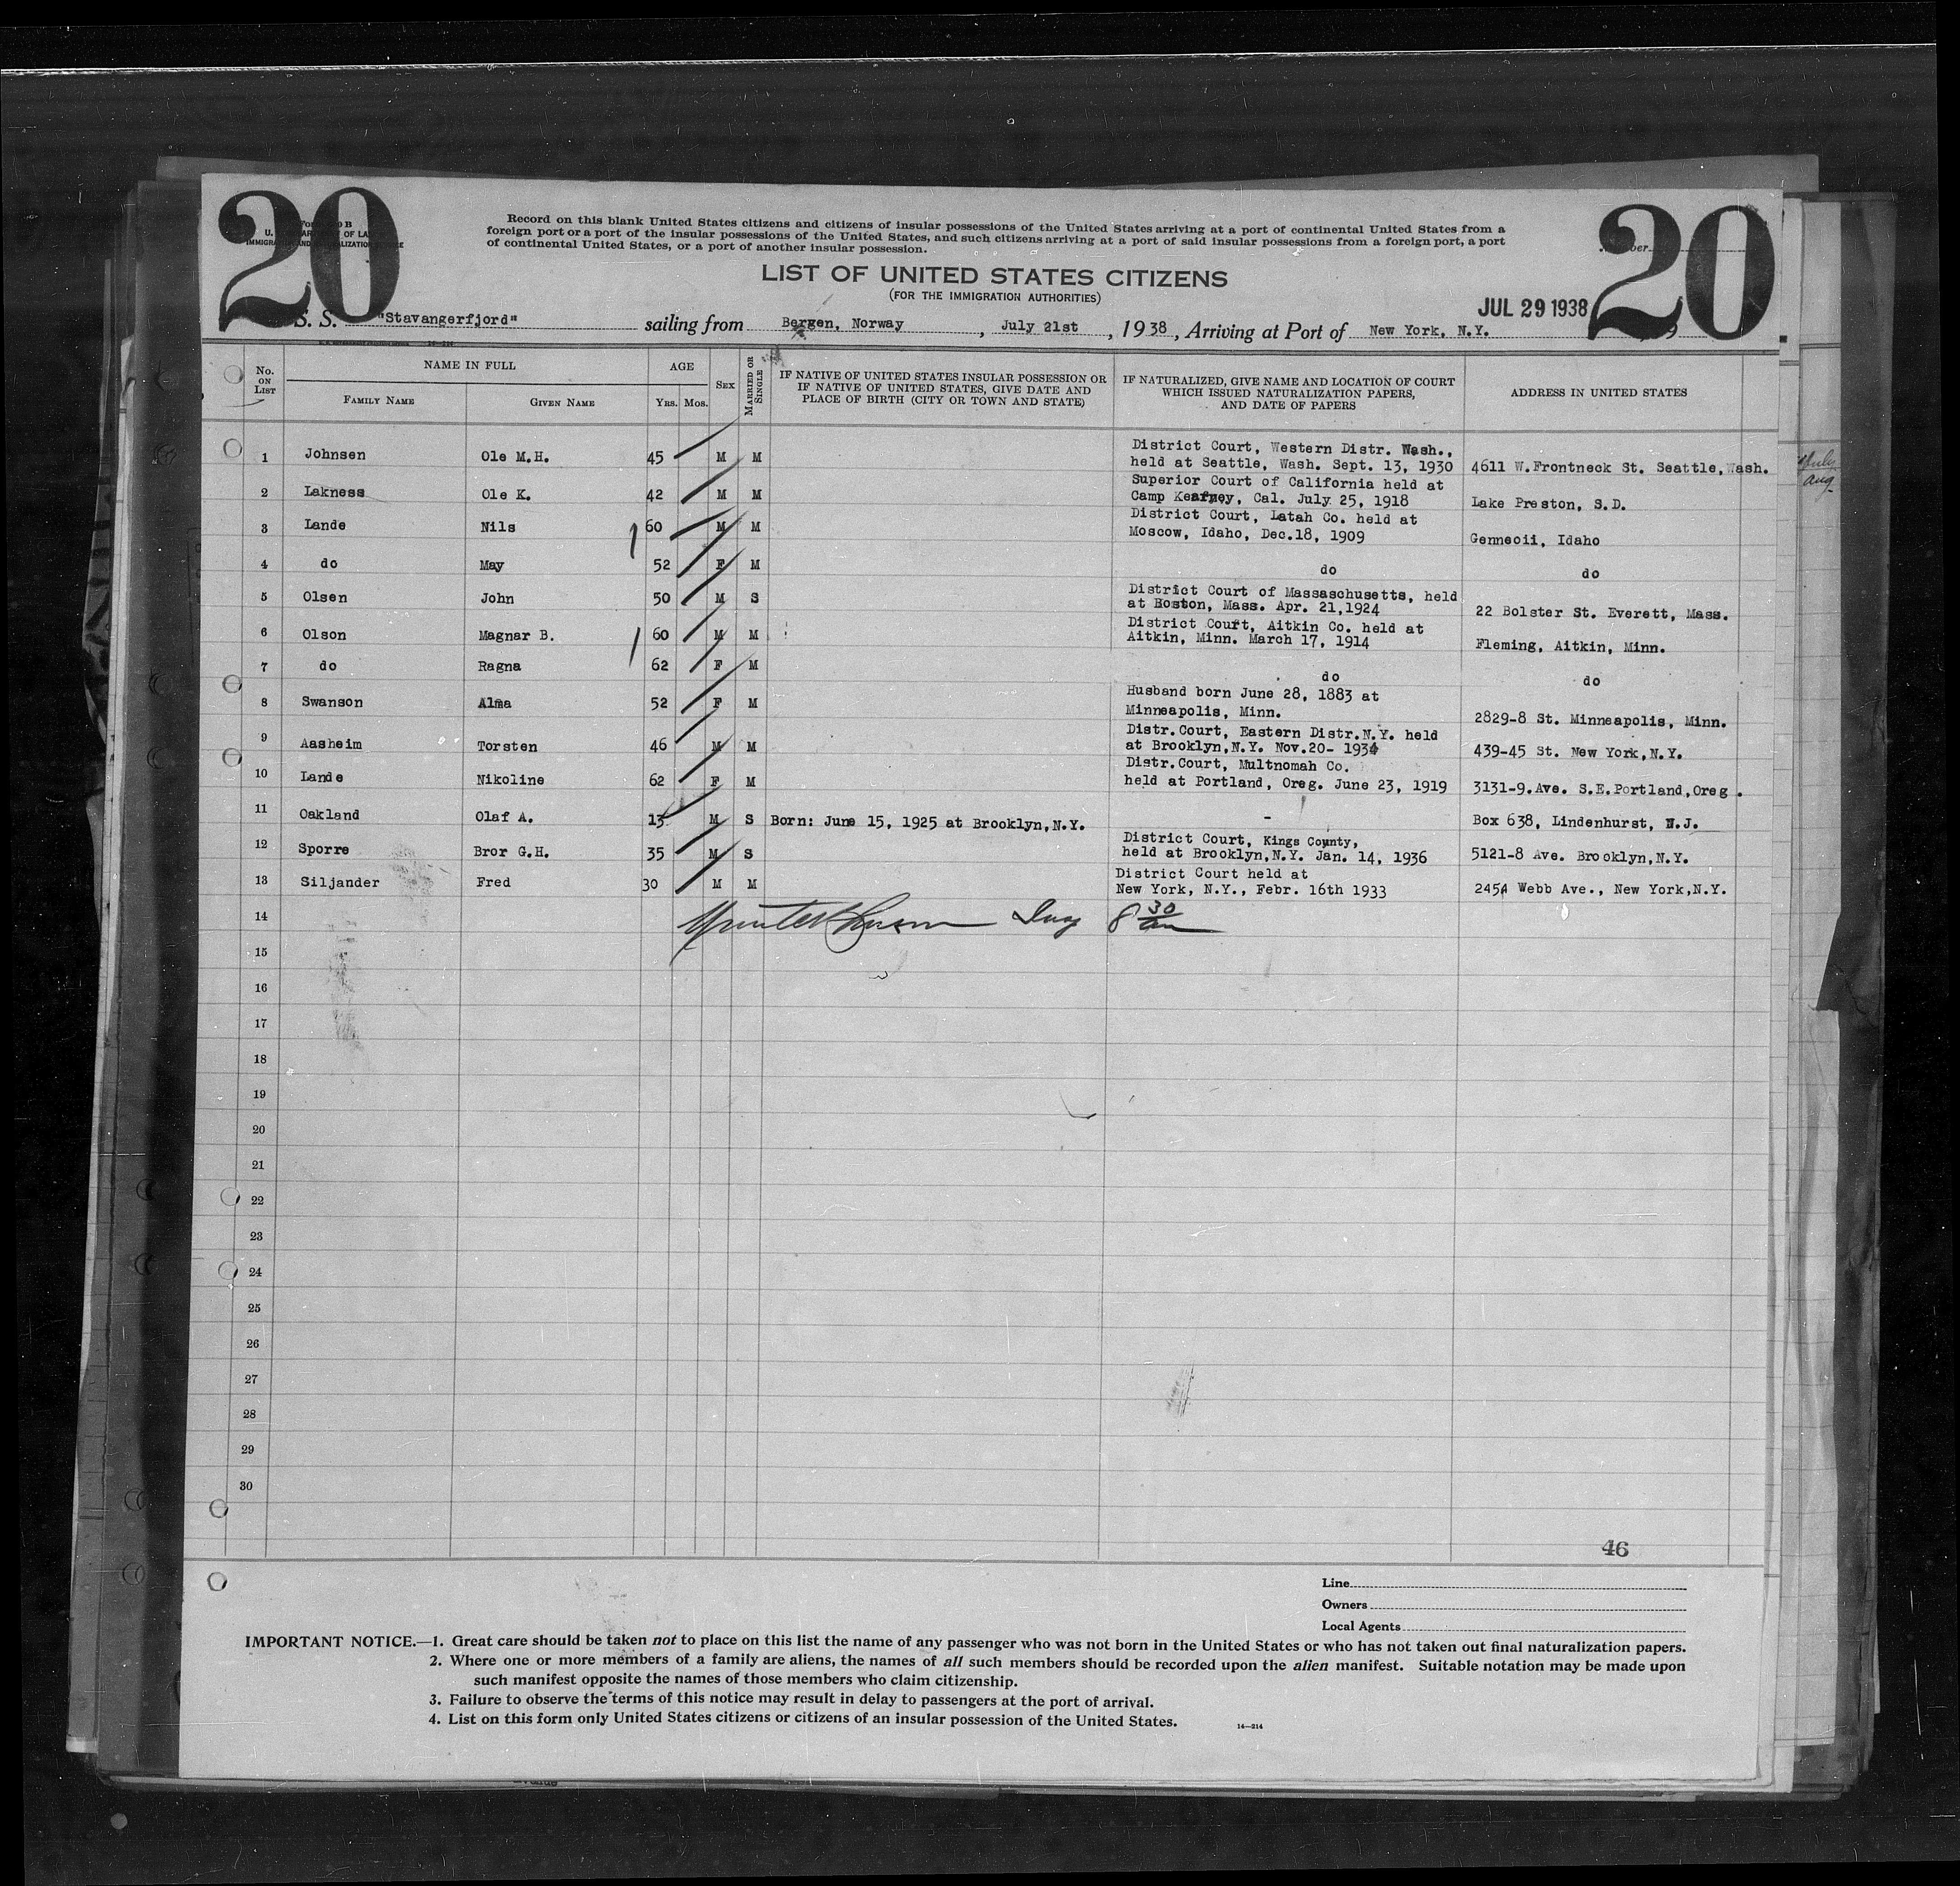 20
20
Record on this blank United States citizens and citizens of insular possessions of the United States arriving at a port of continental United States from a
foreign port or a port of the insular possessions of the United States, and such citizens arriving at a port of said insular possessions from a foreign port, a port
of continental United States, or a port of another insular possession.
LIST OF UNITED STATES CITIZENS
(FOR THE IMMIGRATION AUTHORITIES)
JUL 29 1938
S. S. "Stavangerfjord" sailing from Bergen, Norway, July 21st, 1938, Arriving at Port of New York, N.Y.
No. ON LIST
NAME IN FULL
FAMILY NAME
GIVEN NAME
AGE
YRS. MOS.
SEX
MARRIED OR SINGLE
IF NATIVE OF UNITED STATES INSULAR POSSESSION OR
IF NATIVE OF UNITED STATES, GIVE DATE AND
PLACE OF BIRTH (CITY OR TOWN AND STATE)
IF NATURALIZED, GIVE NAME AND LOCATION OF COURT
WHICH ISSUED NATURALIZATION PAPERS,
AND DATE OF PAPERS
ADDRESS IN UNITED STATES
1 Johnsen Ole M.H. 45 M M District Court, Western Distr. Wash.,
held at Seattle, Wash. Sept. 13, 1930 4611 W.Frontneck St. Seattle,Wash.
2 Lakness Ole K. 42 M M Superior Court of California held at
Camp Kearney, Cal. July 25, 1918 Lake Preston, S.D.
3 Lande Nils 60 M M District Court, Latah Co. held at
Moscow, Idaho, Dec.18, 1909 Gennecii, Idaho
4 do May 52 F M do do
5 Olsen John 50 M S District Court of Massaschusetts, held
at Boston, Mass. Apr. 21,1924 22 Bolster St. Everett, Mass.
6 Olson Magnar B. 60 M M District Court, Aitkin Co. held at
Aitkin, Minn. March 17, 1914 Fleming, Aitkin, Minn.
7 do Ragna 62 F M do do
8 Swanson Alma 52 F M Husband born June 28, 1883 at
Minneapolis, Minn. 2829-8 St. Minneapolis, Minn.
9 Aasheim Torsten 46 M M Distr.Court, Eastern Distr.N.Y. held
at Brooklyn,N.Y. Nov.20- 1934 439-45 St. New York,N.Y.
10 Lande Nikoline 62 F M Distr.Court, Multnomah Co.
held at Portland, Oreg. June 23, 1919 3131-9.Ave. S.E.Portland,Oreg.
11 Oakland Olaf A. 13 M S Born: June 15, 1925 at Brooklyn,N.Y. - Box 638, Lindenhurst, N.J.
12 Sporre Bror G.H. 35 M S District Court, Kings County,
held at Brooklyn,N.Y. Jan. 14, 1936 5121-8 Ave. Brooklyn,N.Y.
13 Siljander Fred 30 M M District Court held at
New York, N.Y., Febr. 16th 1933 2454 Webb Ave., New York,N.Y.
14
8 30
15
16
17
18
19
20
21
22
23
24
25
26
27
28
29
30
46
Line
Owners
Local Agents
IMPORTANT NOTICE.—1. Great care should be taken not to place on this list the name of any passenger who was not born in the United States or who has not taken out final naturalization papers.
2. Where one or more members of a family are aliens, the names of all such members should be recorded upon the alien manifest. Suitable notation may be made upon
such manifest opposite the names of those members who claim citizenship.
3. Failure to observe the terms of this notice may result in delay to passengers at the port of arrival.
4. List on this form only United States citizens or citizens of an insular possession of the United States.
14—214